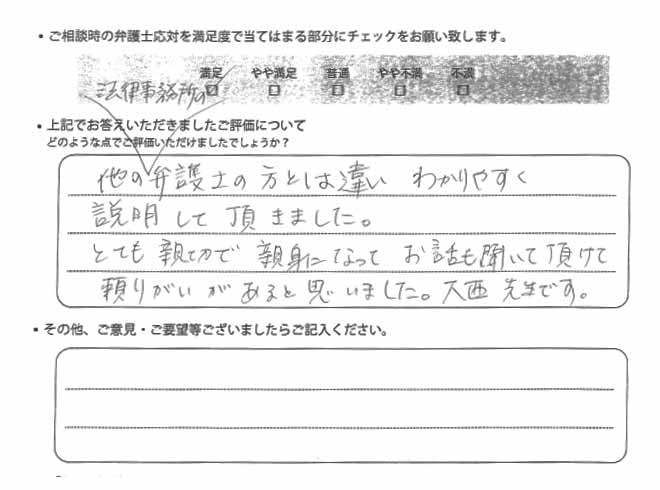 ・ご相談時の弁護士応対を満足度で当てはまる部分にチェックをお願い致します。
満足 やや満足 普通 やや不満 不満
法律事務所の
・上記でお答えいただきましたご評価について
どのような点でご評価いただけましたでしょうか？
他の弁護士の方とは違い わかりやすく
説明して頂きました。
とても親切で親身になって お話も聞いて頂けて
頼りがいがあると思いました。大西先生です。
・その他、ご意見・ご要望等ございましたらご記入ください。